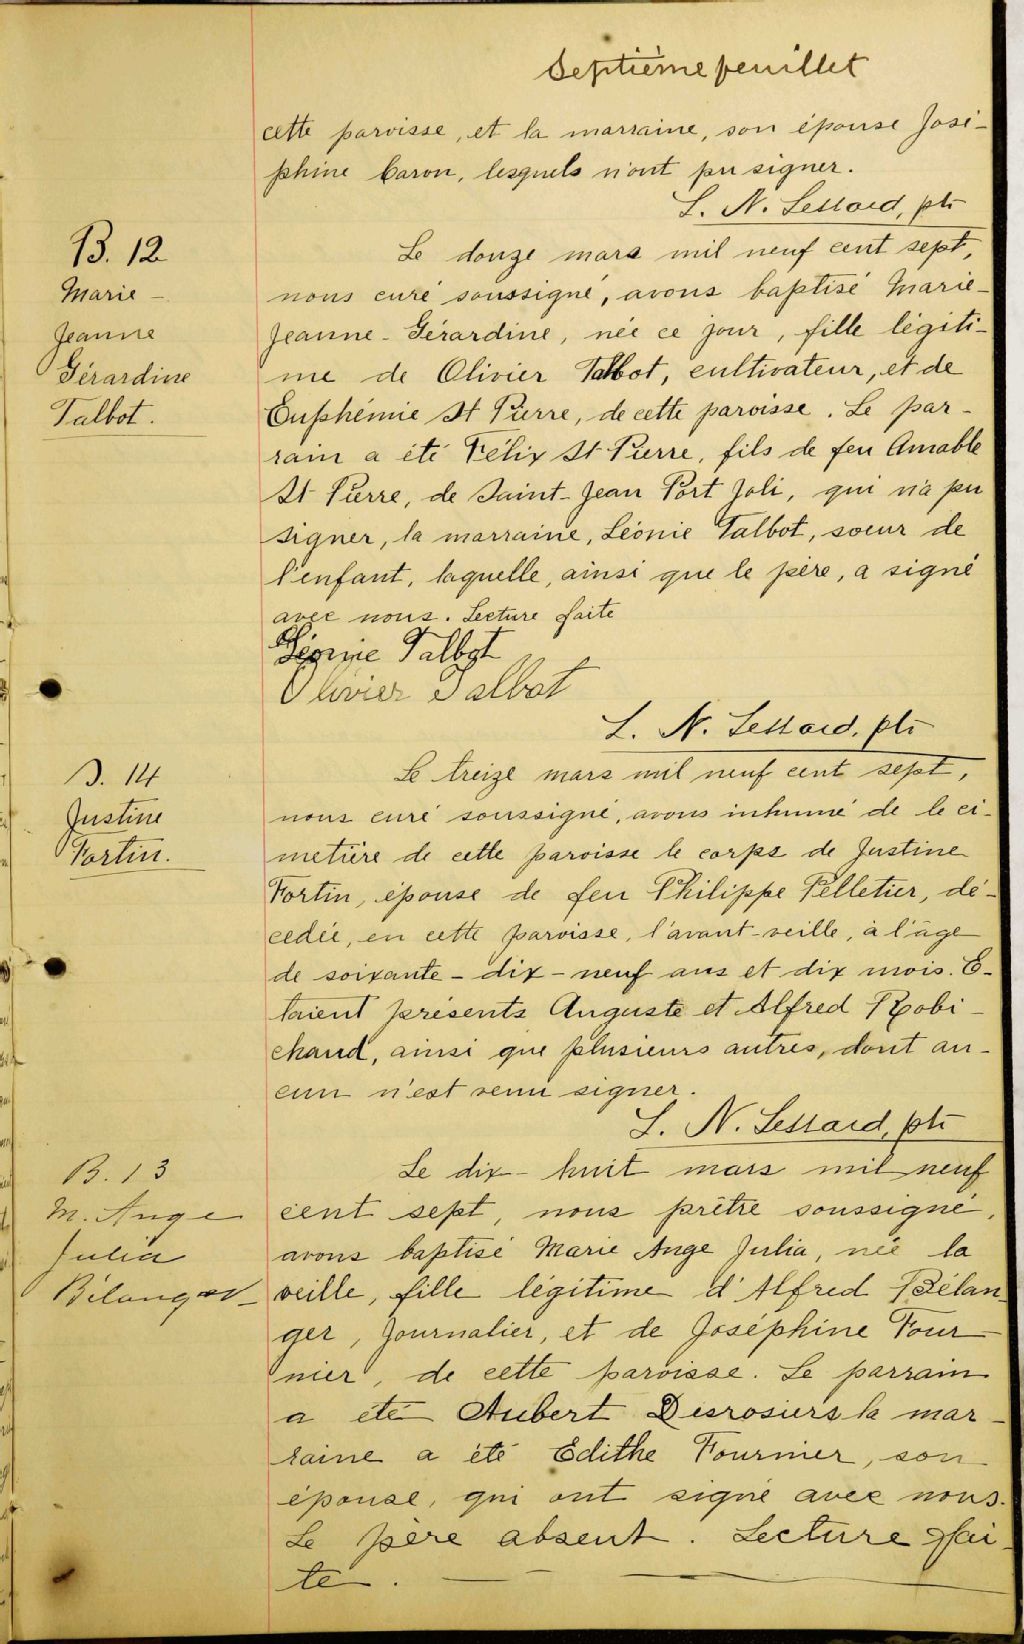 Septième feuillet
cette paroisse, et la marraine, son épouse José-
phine Caron, lesquels n'ont pu signer.
L. N. Lessard, ptr
B. 12
Marie -
Jeanne
Gérardine
Talbot.
Le douze mars mil neuf cent sept,
nous curé soussigné, avons baptisé Marie-
Jeanne-Gérardine, née ce jour, fille légiti-
me de Olivier Talbot, cultivateur, et de
Euphémie St Pierre, de cette paroisse. Le par-
rain a été Félix St Pierre, fils de feu Amable
St Pierre, de Saint-Jean Port Joli, qui n'a pu
signer, la marraine, Léonie Talbot, soeur de
l'enfant, laquelle, ainsi que le père, a signé
avec nous. Lecture faite
Léonie Talbot
Olivier Talbot
L. N. Lessard, ptr
S. 14
Justine
Fortin.
Le treize mars mil neuf cent sept,
nous curé soussigné, avons inhumé de le ci-
metière de cette paroisse le corps de Justine
Fortin, épouse de feu Philippe Pelletier, dé-
cedée, en cette paroisse, l'avant-veille, à l'âge
de soixante-dix-neuf ans et dix mois. E-
taient présents Auguste et Alfred Robi-
chaud, ainsi que plusieurs autres, dont au-
cun n'est venu signer.
L. N. Lessard, ptr
B. 13
M. Ange
Julia
Bélanger
Le dix-huit mars mil neuf
cent sept, nous prêtre soussigné,
avons baptisé Marie Ange Julia, née la
veille, fille légitime d'Alfred Bélan-
ger, Journalier, et de Joséphine Four-
nier, de cette paroisse. Le parrain
a été Aubert Desrosiers la mar-
raine a été Edithe Fournier, son
épouse, qui ont signé avec nous.
Le père absent. Lecture fai-
te.